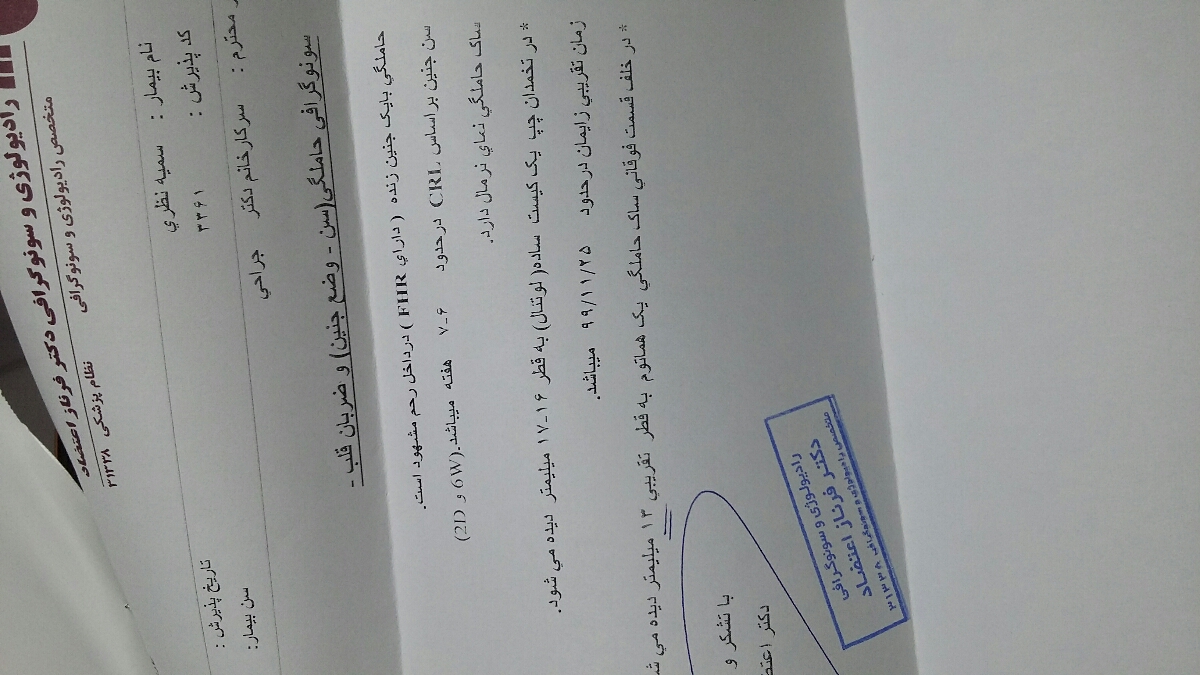 رادیولوژی و سونوگرافی دکتر فرناز اعتضاد
متخصص رادیولوژی و سونوگرافی
نظام پزشکی ۳۱۳۳۸
نام بیمار : سمیه نظري
تاریخ پذیرش :
کد پذیرش : ۳۳۶۱
سن بیمار:
محترم : سرکارخانم دکتر جراحی
سونوگرافی حاملگی(سن - وضع جنین) و ضربان قلب -
حاملگي بایک جنین زنده ( داراي FHR ) درداخل رحم مشهود است.
سن جنین براساس CRL درحدود ۶-۷ هفته میباشد.(6W و 2D)
ساک حاملگي نماي نرمال دارد.
* در تخمدان چپ یک کیست ساده( لوتئال) به قطر ۱۶-۱۷ میلیمتر دیده می شود.
زمان تقریبي زایمان درحدود ۹۹/۱۱/۲۵ میباشد.
* در خلف قسمت فوقاني ساک حاملگي یک هماتوم به قطر تقریبي ۱۳ میلیمتر دیده می
با تشکر و
دکتر
رادیولوژی و سونوگرافی
دکتر فرناز اعتضاد
متخصص رادیولوژی و سونوگرافی ۳۱۳۳۸